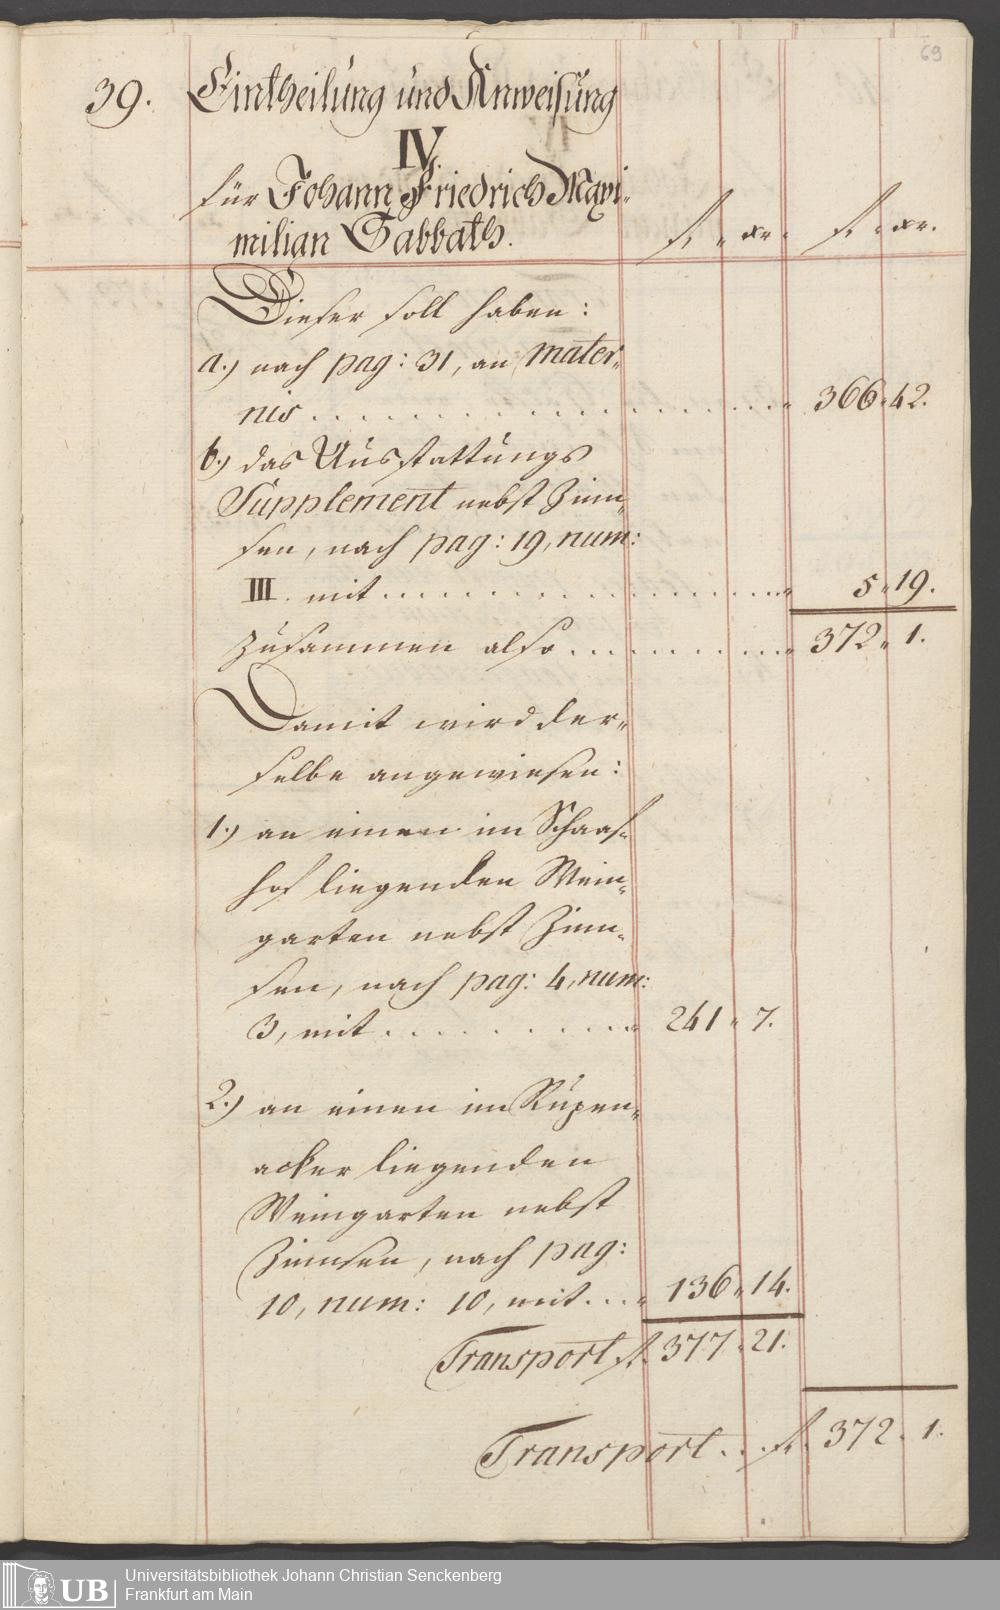 69
39. Eintheilung und Anweisung
IV.
für Johann Friedrich Maxi-
milian Sabbath.
fl. xr. fl. xr.
Dieser soll haben:
a.) nach pag: 31, an mater-
nis . . . . . . . . . . 366 42.
b.) das Ausstattungs
Supplement nebst Zinn-
sen, nach pag: 19, num:
III. mit . . . . . . . . . . 5 19.
zusammen also . . . . . . . . . . 372 1.
Damit wird der-
selbe angewiesen:
1.) an einen im Schaaf-
hof liegenden Wein-
garten nebst Zinn-
sen, nach pag: 4, num:
3, mit . . . . . . . . . . 241 7.
2.) an einen im Rüpen-
acker liegenden
Weingarten nebst
Zinnsen, nach pag:
10, num: 10, mit . . . 136 14.
Transport fl. 377 21.
Transport . . . fl. 372 1.
UB
Universitätsbibliothek Johann Christian Senckenberg
Frankfurt am Main